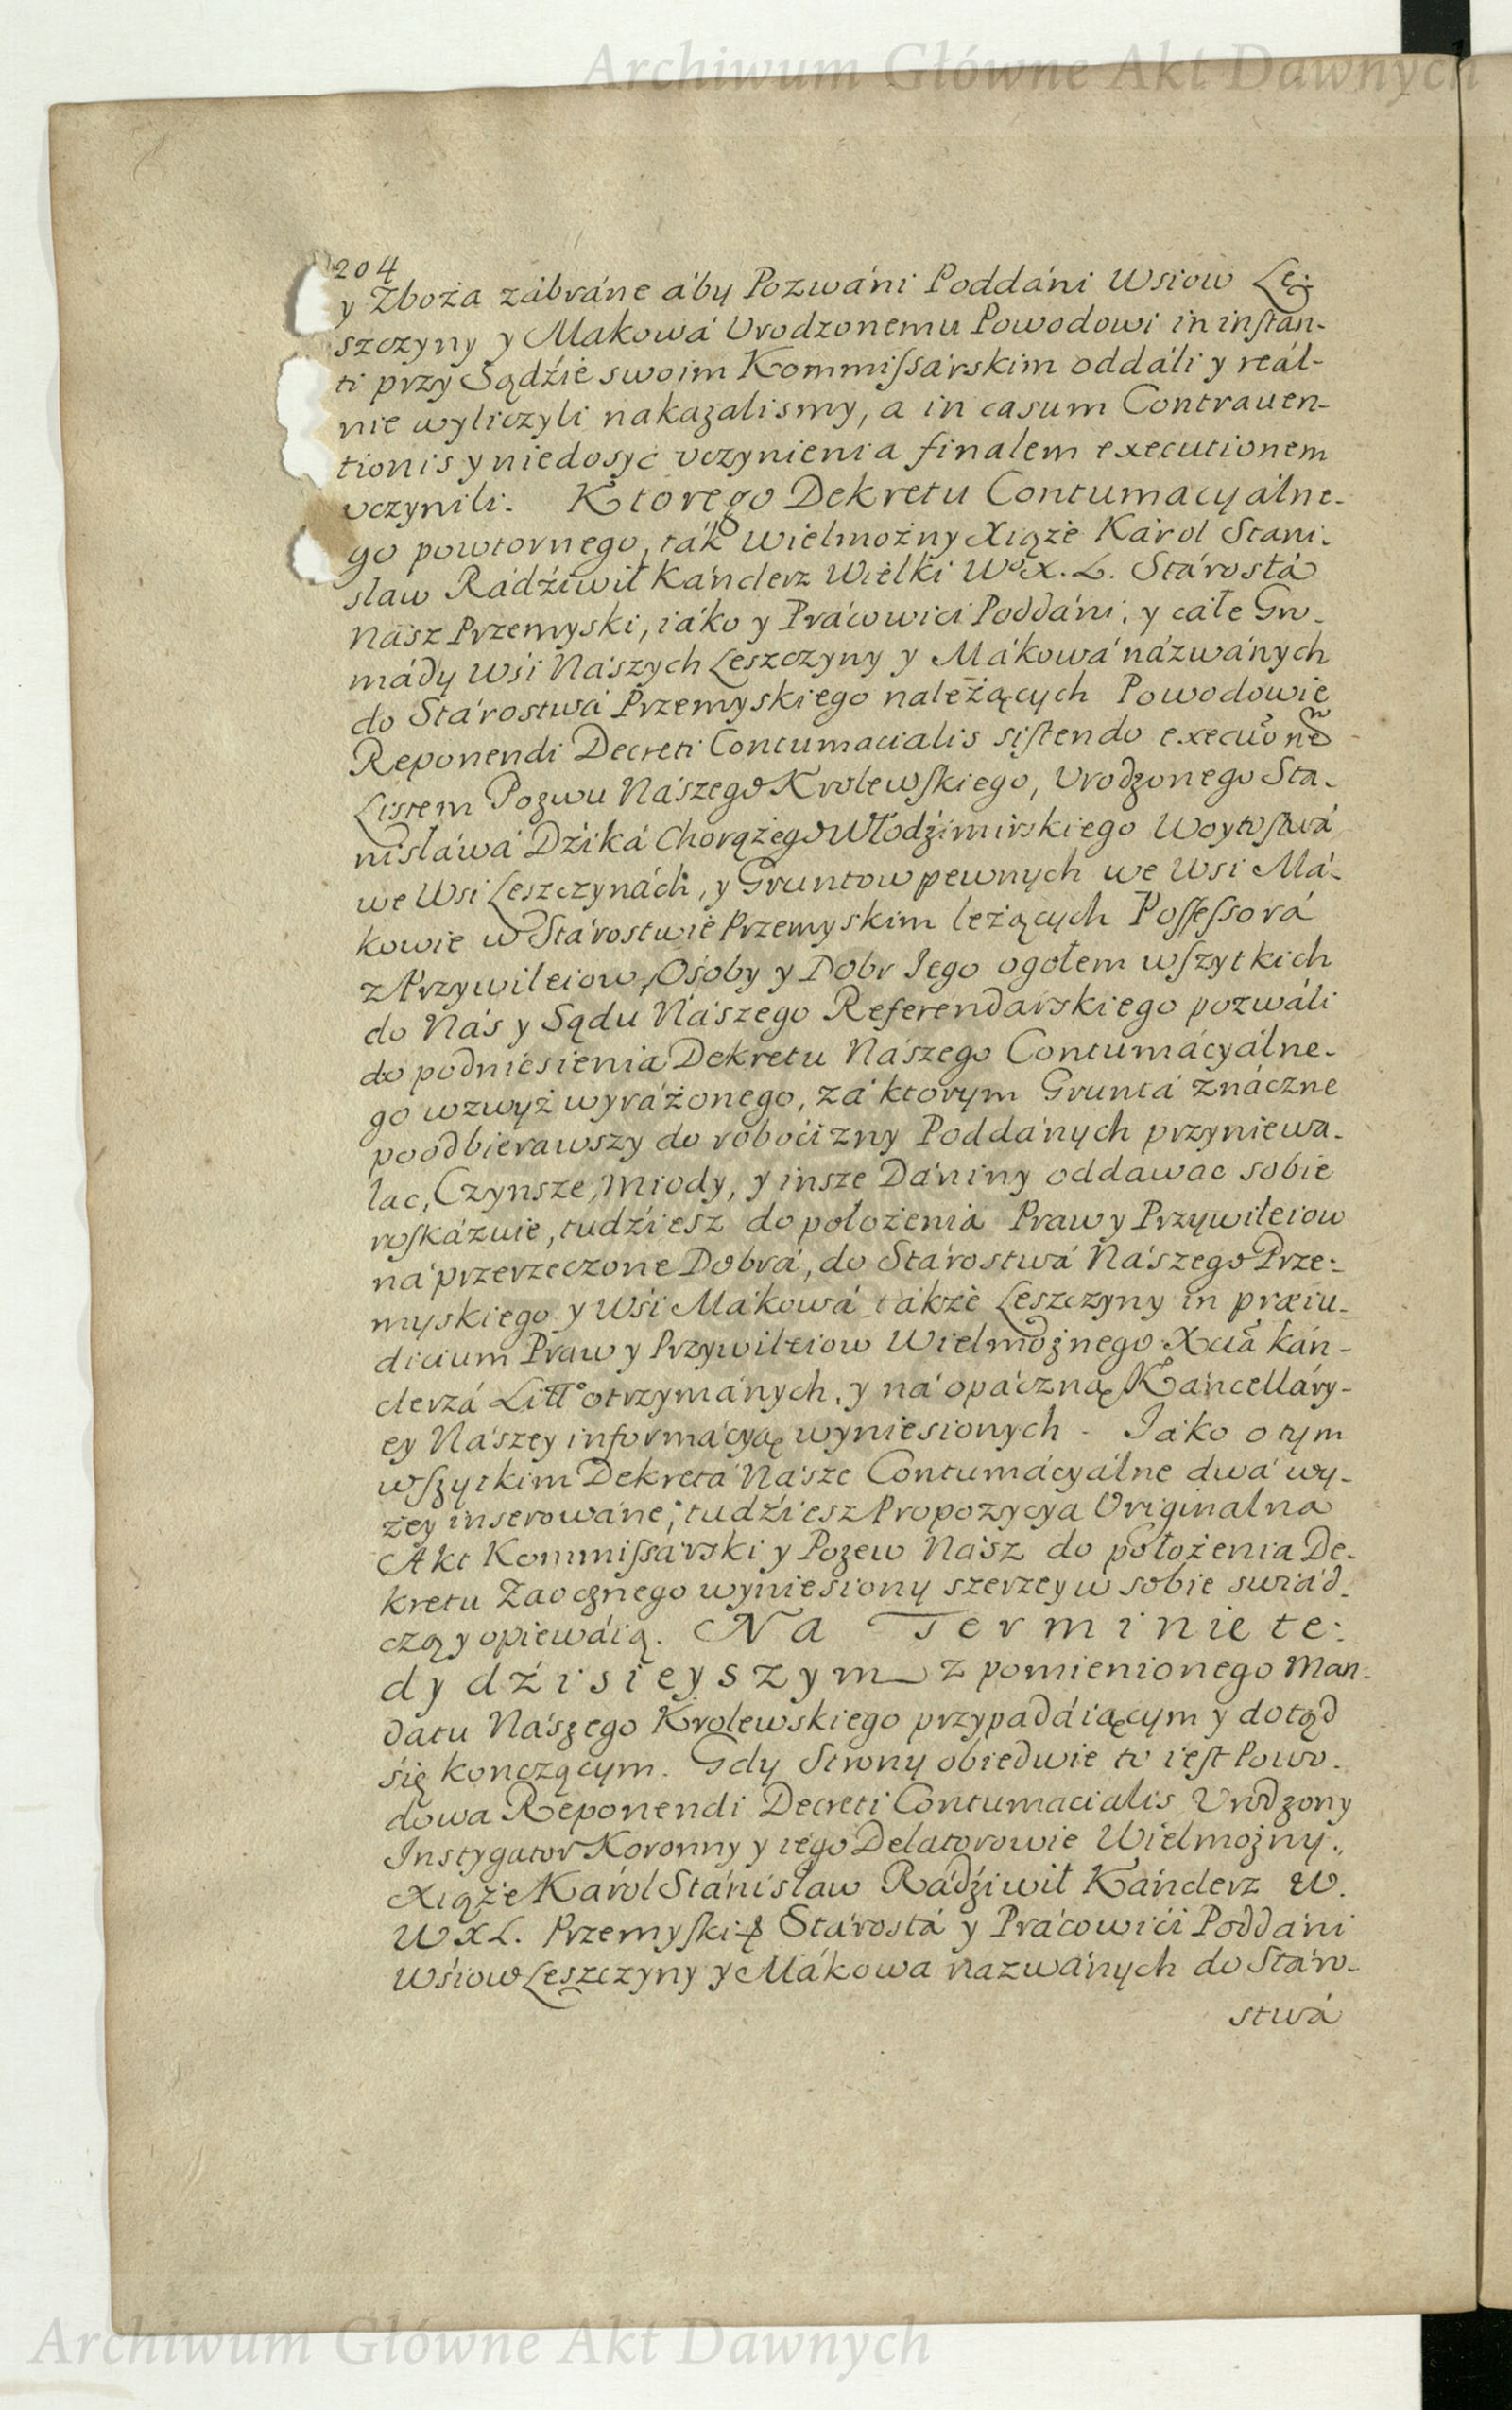 Archiwum Główne Akt Dawnych
204
y Zboża zábráne áby Pozwáni Poddáni Wsiow Le-
szczyny y Makowá Vrodzonemu Powodowi in instan-
ti przy Sądźie swoim Kommissárskim oddáli y reál-
nie wyliczyli nakazalismy, a in casum Contrauen-
tionis y niedosyć vczynienia finalem executionem
vczynili. Ktorego Dekretu Contumacyálne-
go powtornego, ták Wielmożny Xiąże Károl Stani-
sław Rádźiwił Kánclerz Wielki W° X. L. Stárostá
Nász Przemyski, iáko y Prácowici Poddáni, y całe Gro-
mády Wśi Nászych Leszczyny y Mákowá názwánych
do Stárostwá Przemyskiego należących Powodowie
Reponendi Decreti Contumacialis sistendo execuõnẽ
Listem Pozwu Nászego Krolewskiego, Vrodzonego Sta-
nisłáwá Dźiká Chorążego Włodźimirskiego Woytostwá
we Wsi Leszczynách, y Gruntow pewnych we Wsi Má-
kowie w Stárostwie Przemyskim leżących Possessorá
z Przywileiow, Osoby y Dobr Iego ogołem wszytkich
do Nás y Sądu Nászego Referendarskiego pozwáli
do podniesienia Dekretu Nászego Contumácyálne-
go wzwyż wyráżonego, zá ktorym Gruntá znáczne
poodbierawszy do roboćizny Poddánych przyniewa-
lac, Czynsze, Miody, y insze Dániny oddawac sobie
roskázuie, tudźiesz do położenia Praw y Przywileiow
ná przerzeczone Dobrá, do Stárostwá Nászego Prze-
myskiego y Wśi Mákowá tákże Leszczyny in præiu-
dicium Praw y Przywileiow Wielmożnego Xcia Kán-
clerzá Litt° otrzymánych, y ná opáczną Káncelláry-
ey Nászey informácyą wyniesionych. Iako o tym
wszytkim Dekretá Násze Contumácyálne dwá wy-
żey inserowáne; tudźiesz Propozycya Originalna
Akt Kommissárski y Pozew Nász do położenia De-
kretu Zaocznego wyniesiony szerzey w sobie swiád-
czą y opiewáią. Na Terminie te-
dy dźisieyszym z pomienionego Man-
datu Nászego Krolewskiego przypadáiącym y dotąd
się konczącym. Gdy Strony obiedwie to iest Powo-
dowa Reponendi Decreti Contumacialis Vrodzony
Instygator Koronny y iego Delatorowie Wielmożny
Xiąże Károl Stánisław Rádźiwił Kánclerz W.
W X L. Przemyski Stárostá y Prácowići Poddáni
Wśiow Leszczyny y Mákowa nazwánych do Stáro-
stwá
Archiwum Główne Akt Dawnych